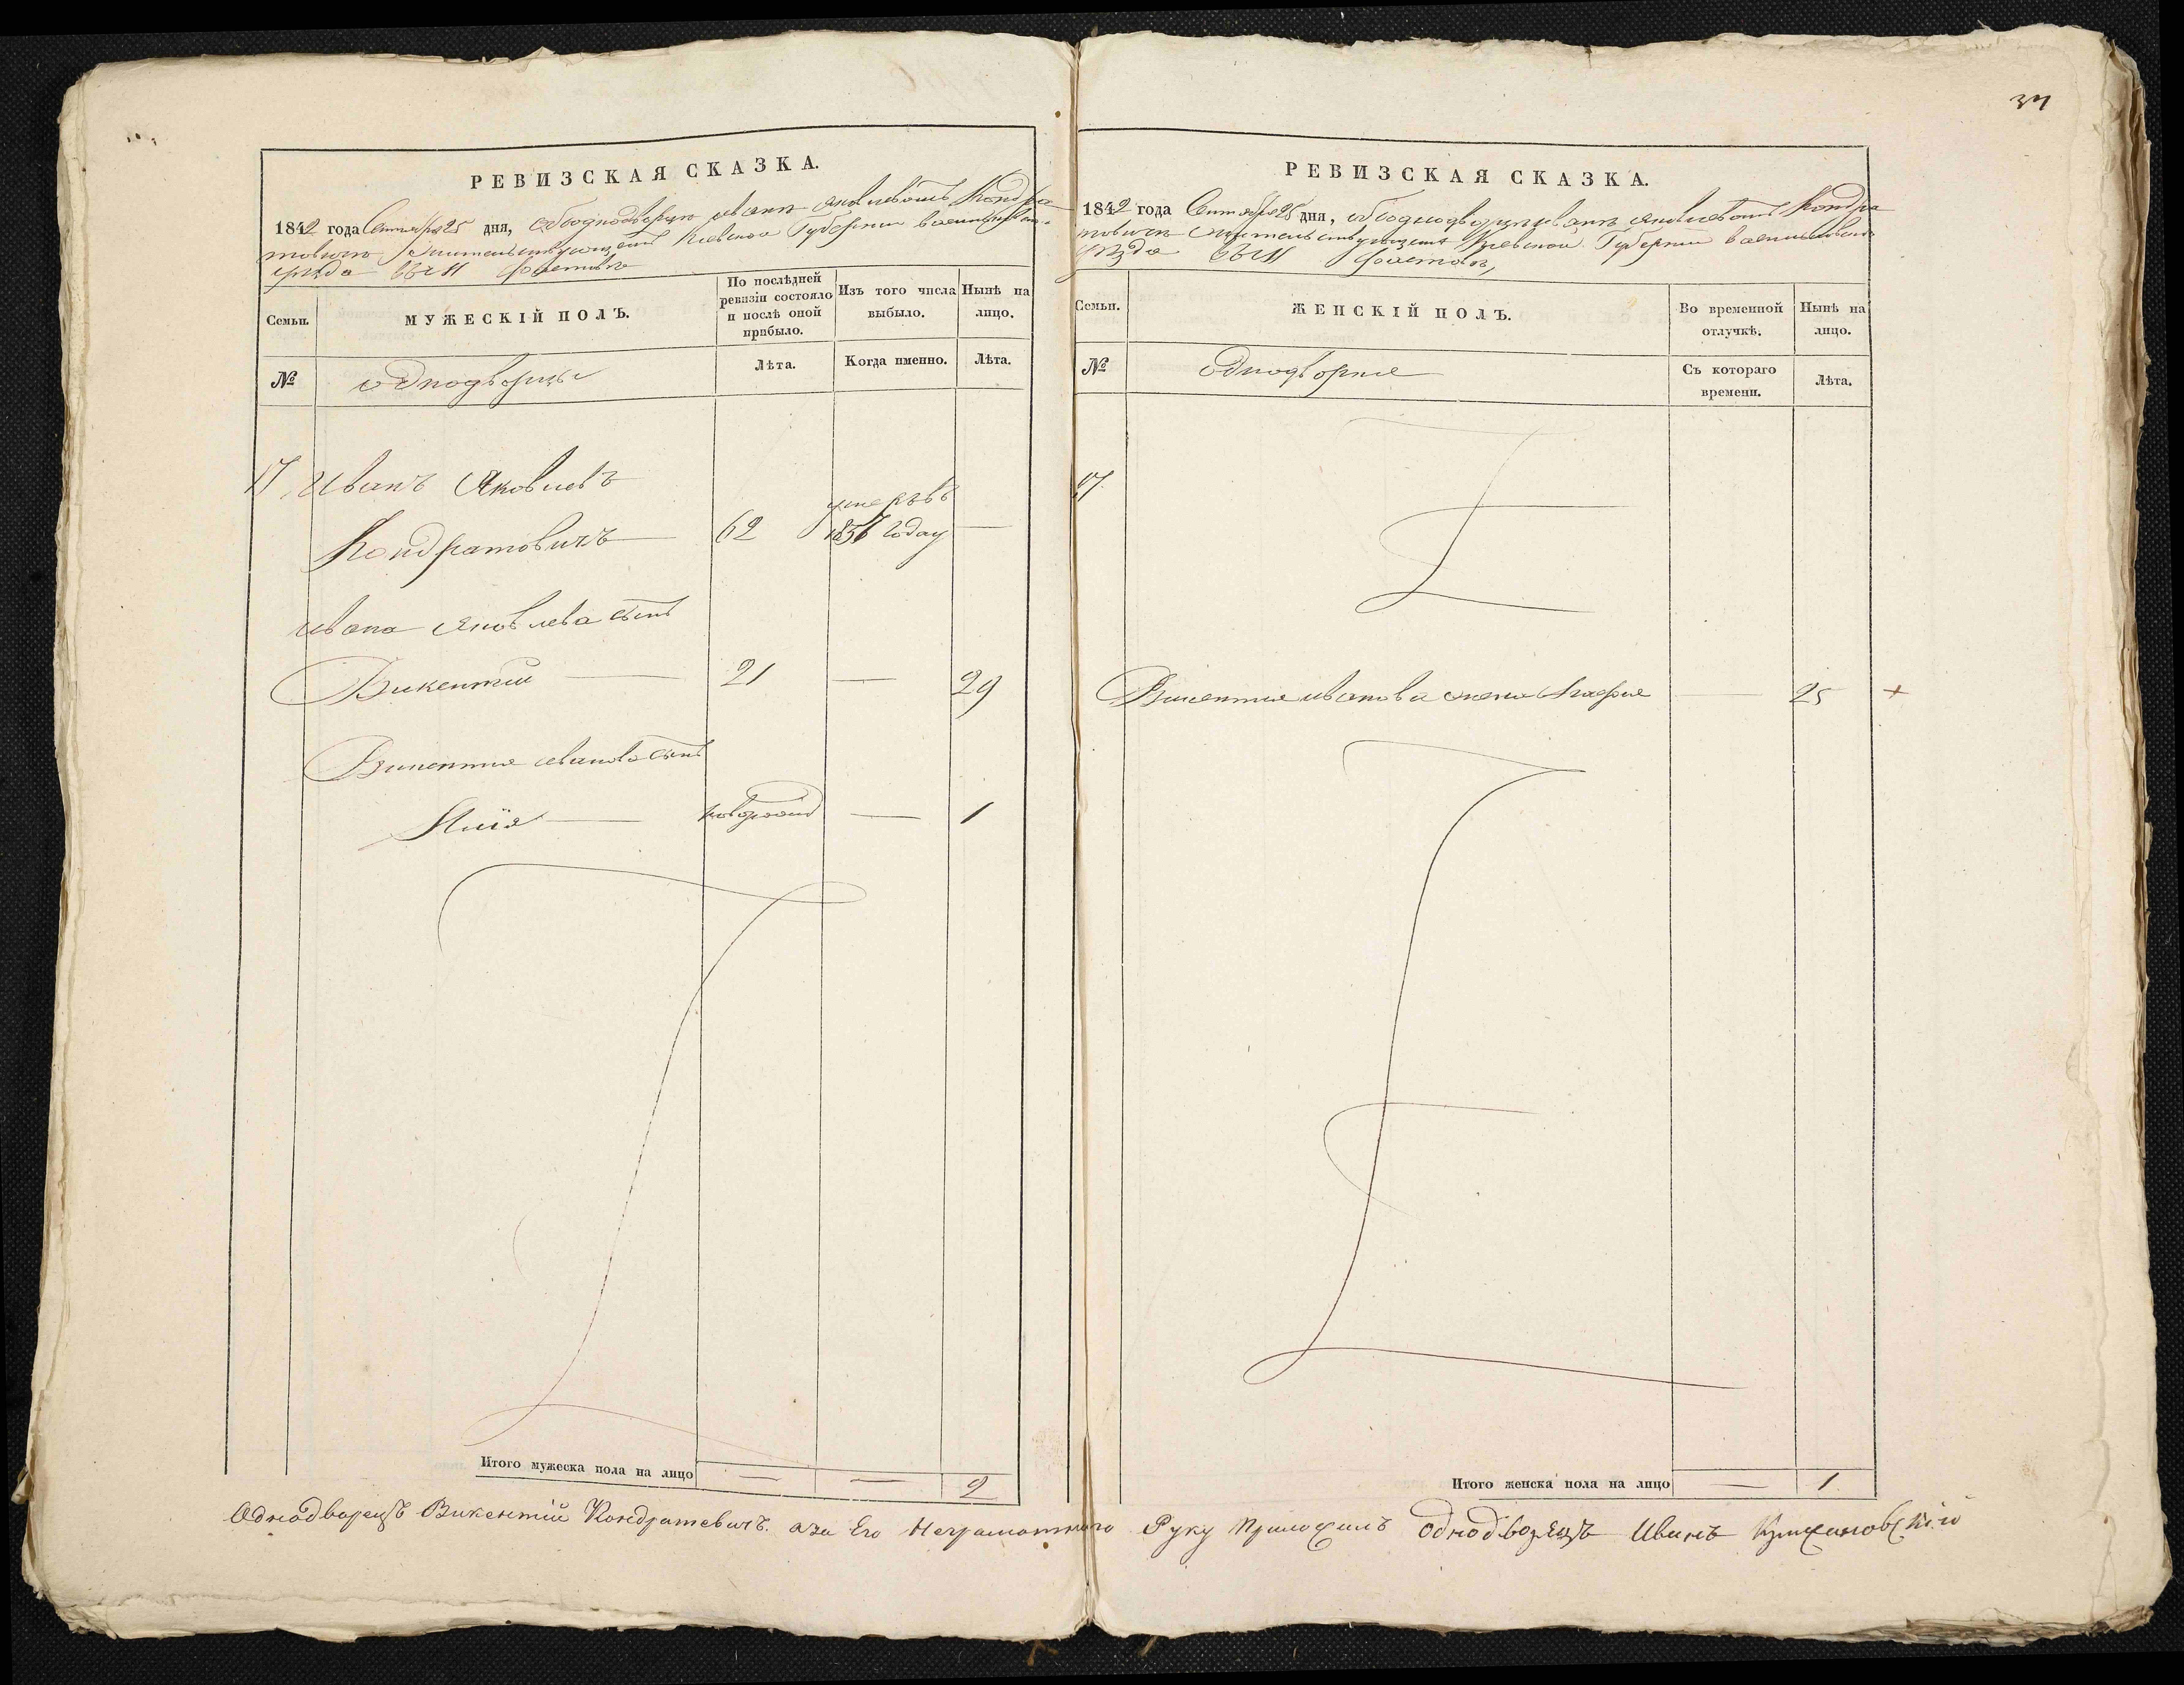 34
РЕВИЗСКАЯ СКАЗКА.
1842 года Сентября 25 дня, объ однодворцѣ Иванѣ Яковлевомъ Кондра-
товичѣ жительствующемъ Киевской Губернии Васильковско-
уѣзда въ М Фастовѣ
Семьи.
МУЖЕСКІЙ ПОЛЪ.
По послѣдней ревизіи состояло и послѣ оной прибыло.
Изъ того числа выбыло.
Нынѣ на лицо.
№
однодворцы
Лѣта.
Когда именно.
Лѣта.
17 Иванъ Яковлевъ
Кондратовичъ — 62 умеръ въ 183 году —
Ивана Яковлева сынъ
Викентий — 21 — 29
Викентия Иванова сынъ
новорожд — 1
Итого мужеска пола на лицо — — 2
РЕВИЗСКАЯ СКАЗКА.
1842 года Сентября 25 дня, объ однодворцѣ Иванѣ Яковлевомъ Кондра
товичѣ жительствующемъ Киевской Губернии Васильковско
уѣзда въ М Фастовѣ,
Семьи.
ЖЕНСКІЙ ПОЛЪ.
Во временной отлучкѣ.
Нынѣ на лицо.
№
однодворки
Съ котораго времени.
Лѣта.
17
Викентия Иванова жена — 25 +
Итого женска пола на лицо — 1
Однодворецъ Викентій Кондратевичъ. а за Его Неграмотного Руку Приложилъ Однодворецъ Иванъ